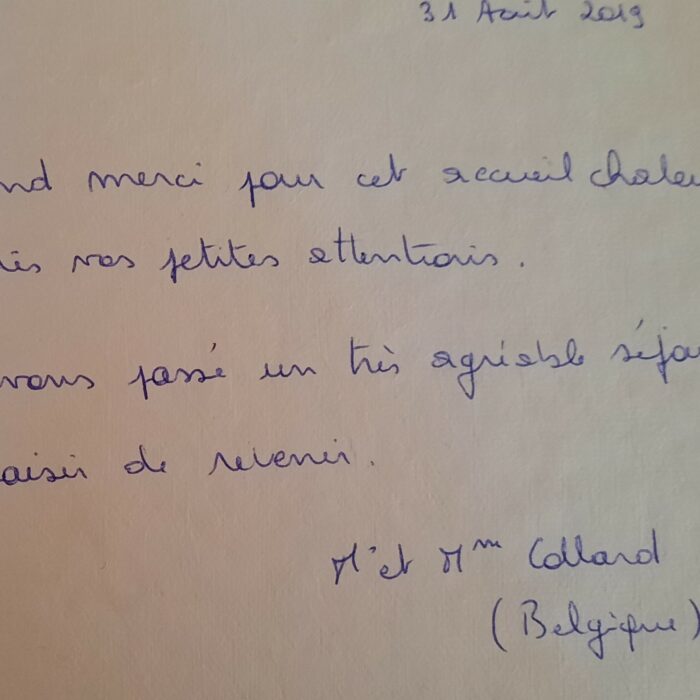 31 Août 2019
nd merci pour cet accueil chaleu
ès vos petites attentions.
vons passé un très agréable séjou
aisir de revenir.
Mr et Mme Collard
(Belgique)